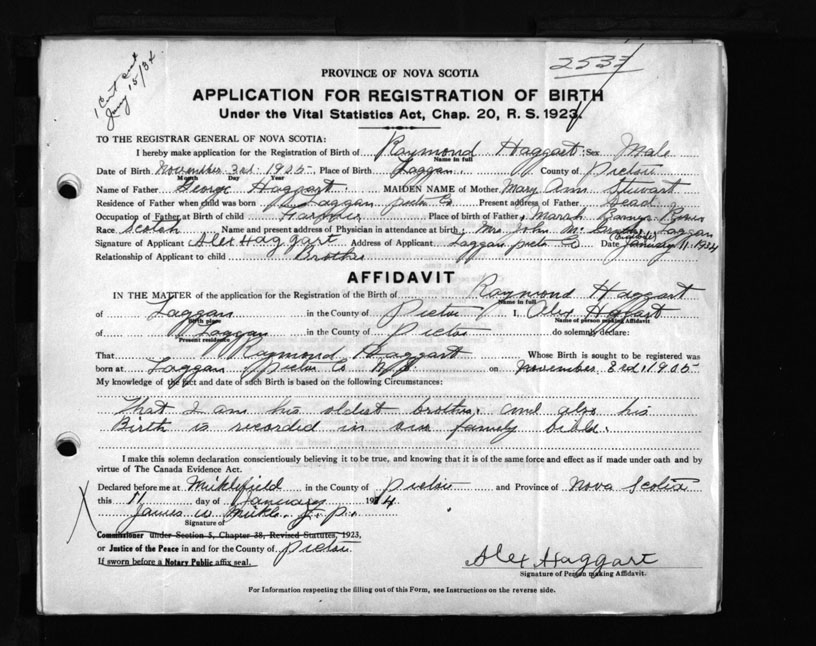 1 Cert out
Jany 15/34
2533
PROVINCE OF NOVA SCOTIA
APPLICATION FOR REGISTRATION OF BIRTH
Under the Vital Statistics Act, Chap. 20, R. S. 1923.
TO THE REGISTRAR GENERAL OF NOVA SCOTIA:
I hereby make application for the Registration of Birth of Raymond Haggart Sex Male
Name in full
Date of Birth November 3rd. 1905 Place of Birth Laggan. County of Pictou
Month Day Year
Name of Father George Haggart. MAIDEN NAME of Mother Mary Ann Stewart
Residence of Father when child was born Laggan Pictou Co Present address of Father Dead
Occupation of Father at Birth of child Farmer Place of birth of Father Marsh Barneys River
Race Scotch Name and present address of Physician in attendance at birth Mrs John Mc Laggan
Signature of Applicant Alex Haggart Address of Applicant Laggan Pictou Co Date January 11. 1934
Relationship of Applicant to child Brother
AFFIDAVIT
IN THE MATTER of the application for the Registration of the Birth of Raymond Haggart
Name in full
of Laggan in the County of Pictou I, Alex Haggart
Birth place Name of person making Affidavit
of Laggan in the County of Pictou do solemnly declare:
Present residence
That Raymond Haggart Whose Birth is sought to be registered was
born at Laggan Pictou Co N.S. on November 3rd. 1905
My knowledge of the fact and date of such Birth is based on the following Circumstances:
That I am his oldest brother, and also his
Birth is recorded in our family bible.
I make this solemn declaration conscientiously believing it to be true, and knowing that it is of the same force and effect as if made under oath and by
virtue of The Canada Evidence Act.
Declared before me at Micklefield in the County of Pictou and Province of Nova Scotia
this 11 day of January 1934
James W Mickle J. P.
Signature of
Commissioner under Section 5, Chapter 38, Revised Statutes, 1923,
or Justice of the Peace in and for the County of Pictou.
If sworn before a Notary Public affix seal.
Alex Haggart
Signature of Person making Affidavit.
For Information respecting the filling out of this Form, see Instructions on the reverse side.